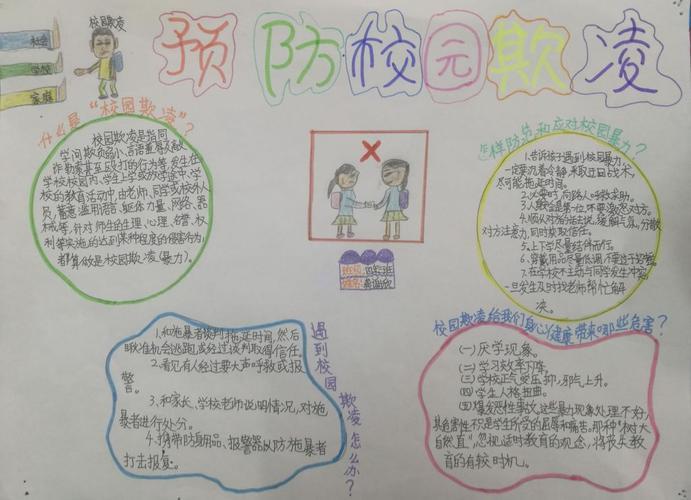 预防校园欺凌
校园欺凌
社会
学校
家庭
什么是“校园欺凌”?
校园欺凌是指同
学间欺负弱小、言语羞辱及敲
诈勒索甚至殴打的行为等,发生在
学校校园内、学生上学或放学途中、学
校的教育活动中,由老师、同学或校外人
员,蓄意滥用语言、躯体力量、网络、器
械等,针对师生的生理、心理、名誉、权
利等实施的达到某种程度的侵害行为,
都算做是校园欺凌(暴力)。
班级:四
姓名:
怎样防范和应对校园暴力?
1.告诉孩子遇到校园暴力,
一定要沉着冷静,采取迂回战术,
尽可能拖延时间。
2.必要时,向路人呼救求助。
3.人身安全是第一位,不要激怒对方。
4.顺从对方的话去说,缓解气氛,分散
对方注意力,同时获取信任。
5.上下学尽量结伴而行。
6.穿戴用品尽量低调,不要过于招摇。
7.在学校不主动与同学发生冲突,
一旦发生及时找老师帮忙解
决。
遇到校园欺凌怎么办?
1.和施暴者谈判拖延时间,然后
瞅准机会逃跑,或经过谈判取得信任。
2.看见有人经过要大声呼救或报
警。
3、和家长、学校老师说明情况,对施
暴者进行处分。
4.携带防身用品、报警器以防施暴者
打击报复。
校园欺凌给我们身心健康带来哪些危害?
(一)厌学现象。
(二)学习效率下降。
(三)学校正气受压抑,邪气上升。
(四)学生人格扭曲。
(五)爆发恶性事故,这些暴力现象处理不好,
其危害性不只是学生所受的屈辱和痛苦。那种“树大
自然直”,忽视适时教育的观念,将丧失教
育的有较时机。